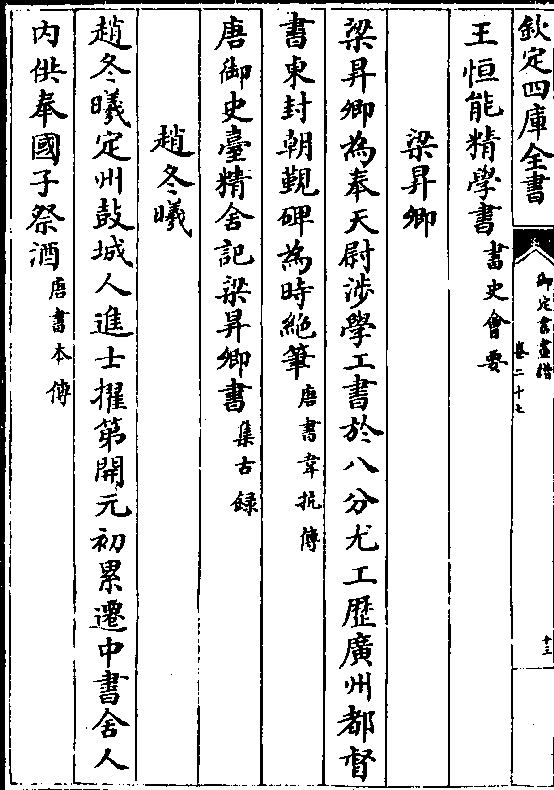 欽定四庫全書
御定書畫譜
卷二十七
十三
王恒能精學書書史會要
梁昇卿
梁昇卿為奉天尉涉學工書於八分尤工歷廣州都督
書東封朝覲碑為時絶筆唐書韋抗傳
唐御史臺精舍記梁昇卿書集古録
趙冬曦
趙冬曦定州鼓城人進士擢第開元初累遷中書舍人
内供奉國子祭酒唐書本傳